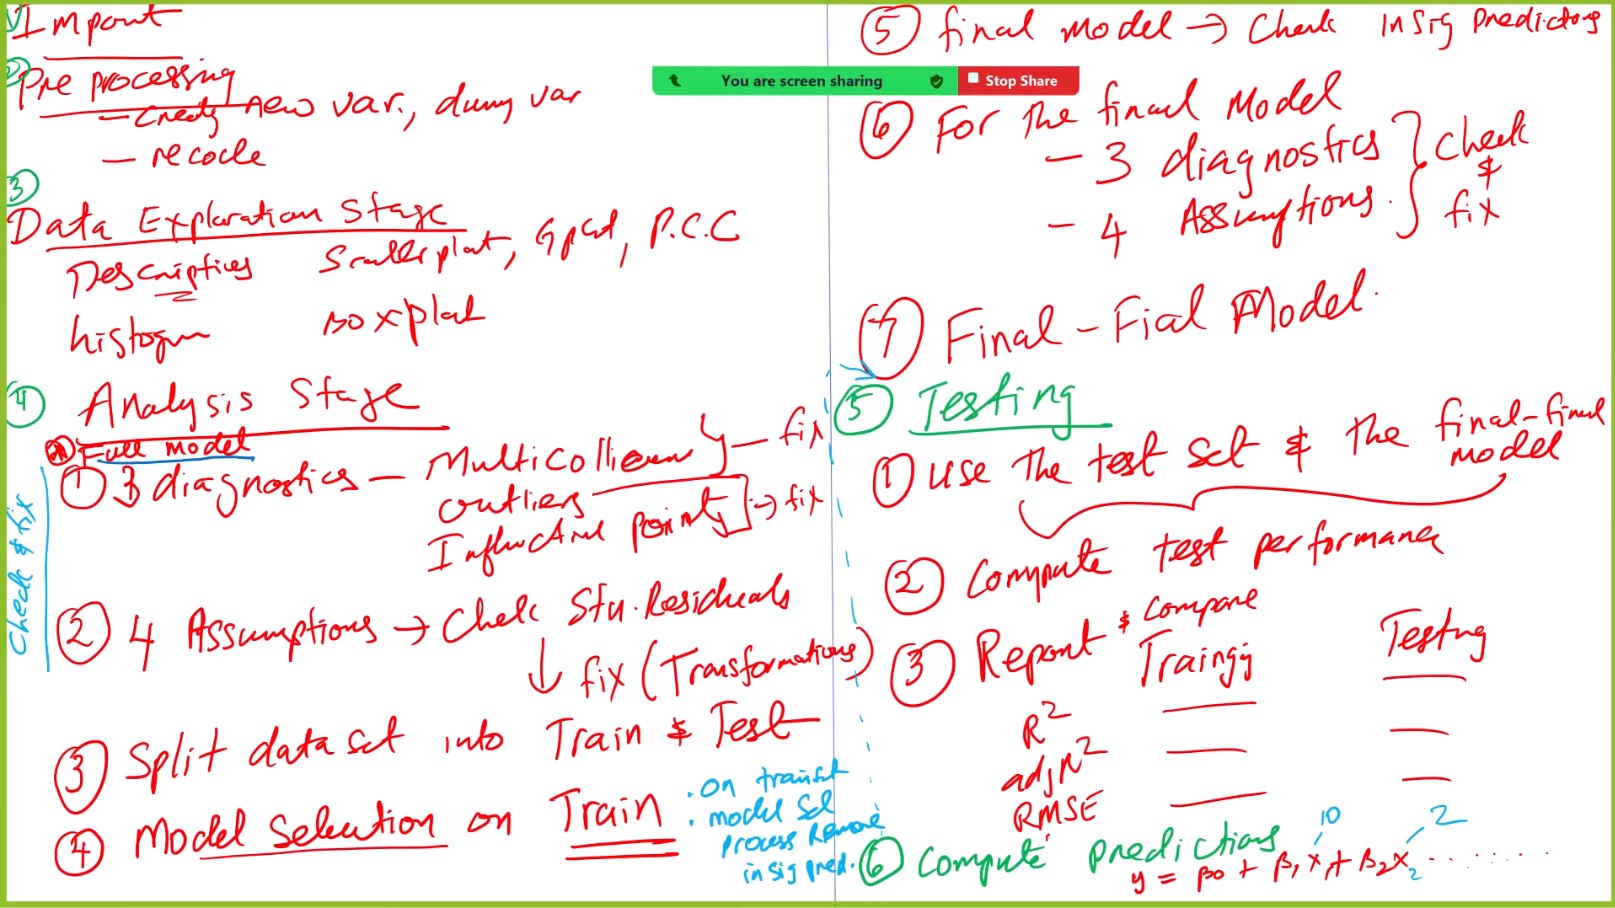 1 Import
2 Pre processing
- Create new var., dumy var
- recode
3
Data Exploration Stage
Descriptives Scatterplot, Gplot, P.C.C
histogm Boxplot
4 Analysis Stage
Full model
1 3 diagnostics - Multicollien } - fix
outliers
Influctial points ] → fix
Check & fix
2 4 Assumptions → Chek Stu. Residuals
↓ fix (Transformations)
3 Split data set into Train & Test
4 Model Selection on Train
. On trainset
. model Sel
process Remove
insig pred.
5 final model → Check InSig Predictors
You are screen sharing Stop Share
6 For the final Model
- 3 diagnostics } Check
- 4 Assumptions. } & fix
7 Final - Fial Model.
5 Testing
1 Use The test set & the final-final model
2 Compute test performance
3 Report & compare Traingg Testing
R²
adjR²
RMSE
6 Compute predictions 10 2
y = β0 + β1 X1 + β2 X2 ........